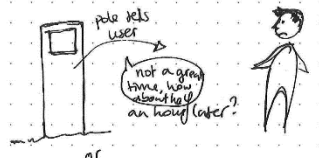 pole tells
user
not a great
time, how
about half
an hour later?
or